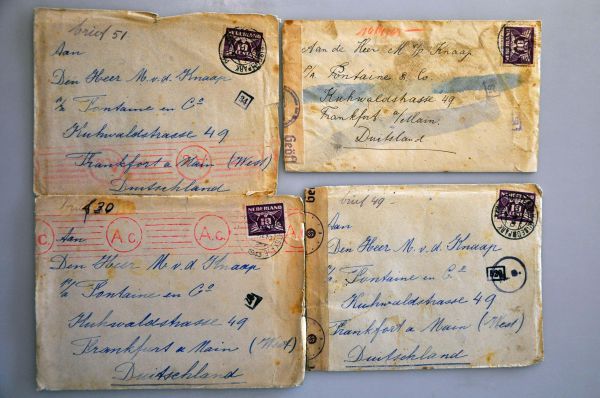 brief 51
NEDERLAND
Aan
Den Heer M. v. d. Knaap
p/a Fontaine en Co
Kuhwaldstrasse 49
Frankfort a Main (West)
Duitschland
Aan de Heer M v/d Knaap
p/a Fontaine & Co.
Kuhwaldstrasse 49
Frankfort a/Main.
Duitsland
Geöf
30
NEDERLAND
A.c.
A.c.
Aan
Den Heer M. v. d. Knaap
p/a Fontaine en Co
Kuhwaldstrasse 49
Frankfurt a Main (West)
Duitschland
brief 49 -
Aan
Den Heer M. v. d. Knaap
p/a Fontaine en Co
Kuhwaldstrasse 49
Frankfort a Main (West)
Duitschland